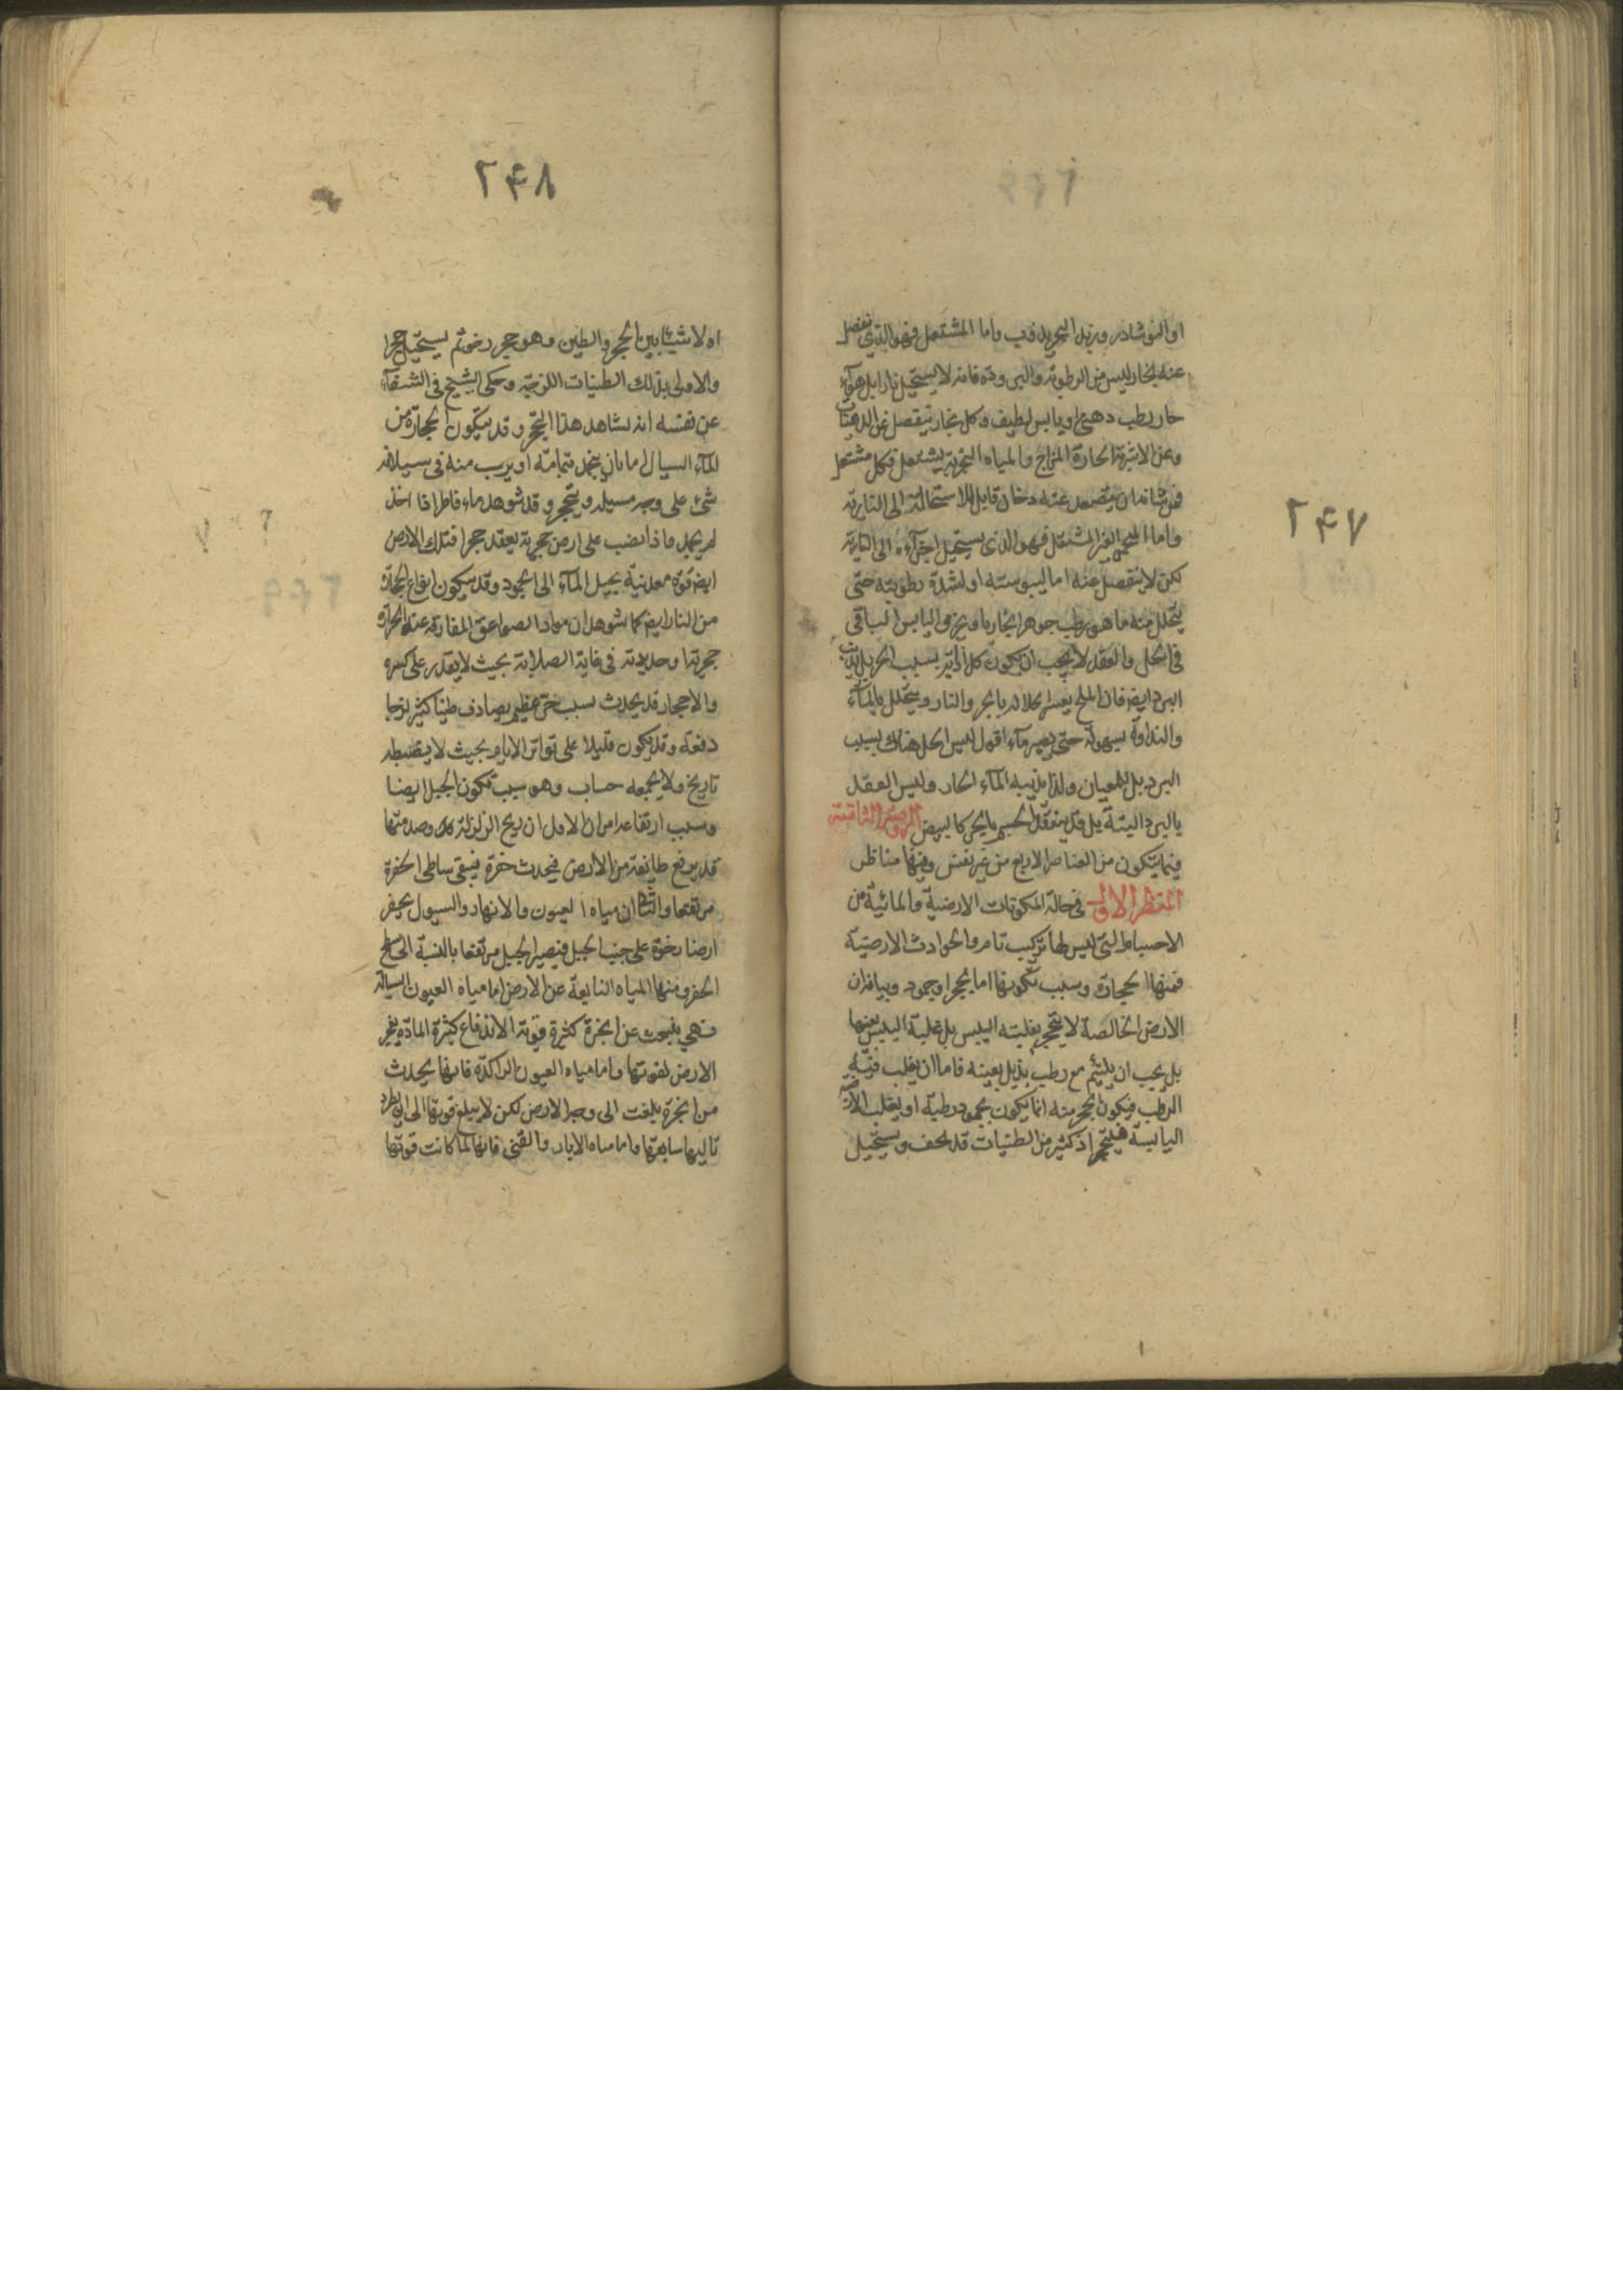 ٢۴٧
او النوشادر وزبد البحر يذوب واما المشتعل فهو الذى ينفصل
عنه بخار ليس من الرطوبة والبرودة فانه لا يستحيل نارا بل هوآء
حار رطب دهنى او يابس لطيف وكل بخار ينفصل عن الدهنيات
وعن الاشربة الحارة المزاج والمياه البحرية يشتعل وكل مشتعل
فمن شانه ان يتصعد عنه دخان قابل للاستحالة الى النارية
واما المتجمر الغير المشتعل فهو الذى يستحيل اجزآءه الى النارية
لكن لا ينفصل عنه اما ليبوسته او لشدة رطوبته حتى
يتحلل منه ما هو رطب جوهر بخاريا ويجزو اليابس الباقى
فى الحل والعقد لا يجب ان يكون كل اذابة بسبب الحر بل يذيب
البرد ايض فان الملح يعسر انحلاله بالحر والنار ويتحلل بالمآء
والنداوة بسهولة حتى يصير مآء اقول ليس الحل هناك بسبب
البرد بل للميعان ولذا يذيبه المآء الحار وليس العقد
بالبرد البتة بل قد ينعقد الجسم بالحر كالبيض الروضة الثامنة
فيما يتكون من العناصر الاربع من غير نفس وفيها مناظر
المنظر الاول فى حالة المكونات الارضية والمائية من
الاحسام التى ليس لها تركيب تام والحوادث الارضية
فمنها الحجارة وسبب تكونها اما يحجر او جمود وبيانه ان
الارض الخالصة لا يتحجر بغلبته اليبس بل غلبة اليبس يعينها
بل يجب ان يلتئم مع رطب يذيل بعينه فاما ان يغلب فيه
الرطب فيكون تحجر منه انما يكون بجمود رطبه او يغلب الارضية
اليابسة فيتحجر اذ كثير من الطينات قد يجف ويستحيل
٢۴٨
اولا شيئا بين الحجر والطين وهو حجر رخو ثم يستحيل حجرا
والاولى بذلك الطينات اللزجة وحكى الشيخ فى الشفآء
عن نفسه انه شاهد هذا التحجر وقد يتكون الحجارة من
المآء السيال اما بان يجمد بتمامه او يرسب منه فى سيلانه
شئ على وجه مسيله ويتحجر وقد شوهد ماء قاطر اذا اخذ
لم يجمد واذا نصب على ارض حجرية يعقد حجرا فتلك الارض
ايض قوة معدنية يحيل المآء الى الجمود وقد يتكون انواع الحجارة
من النار ايض كما شوهد ان مواد الصواعق المفارقة عنها الحرارة
حجرية او حديدية فى غاية الصلابة بحيث لا يقدر على كسره
والاحجار قد يحدث بسبب حر عظيم يصادف طينا كثيرا لزجا
دفعة وقد يكون قليلا على تواتر الايام بحيث لا يضبطه
تاريخ ولا يجمعه حساب وهو سبب تكون الجبل ايضا
وسبب ارتفاعه امران الاول ان ريح الزلزلة وصدمتها
قد يرفع طايفة من الارض فيحدث حفرة فيبقى ساطى الحفرة
مرتفعا والثانى ان مياه العيون والانهار والسيول يحفر
ارضا رخوة على جنب الجبل فيصير الجبل مرتفعا بالنسبة الى سطح
الحفر ومنها المياه النابعة عن الارض اما مياه العيون السيالة
فهى ينبعث عن ابخرة كثيرة قوية الاندفاع كثيرة المادة يفجر
الارض لقوتها واما مياه العيون الراكدة فانها يحدث
من ابخرة بلغت الى وجه الارض لكن لا يبلغ قوتها الى ان يطرد
تاليها سابقها واما مياه الابار والقنى فانها لما كانت قوتها